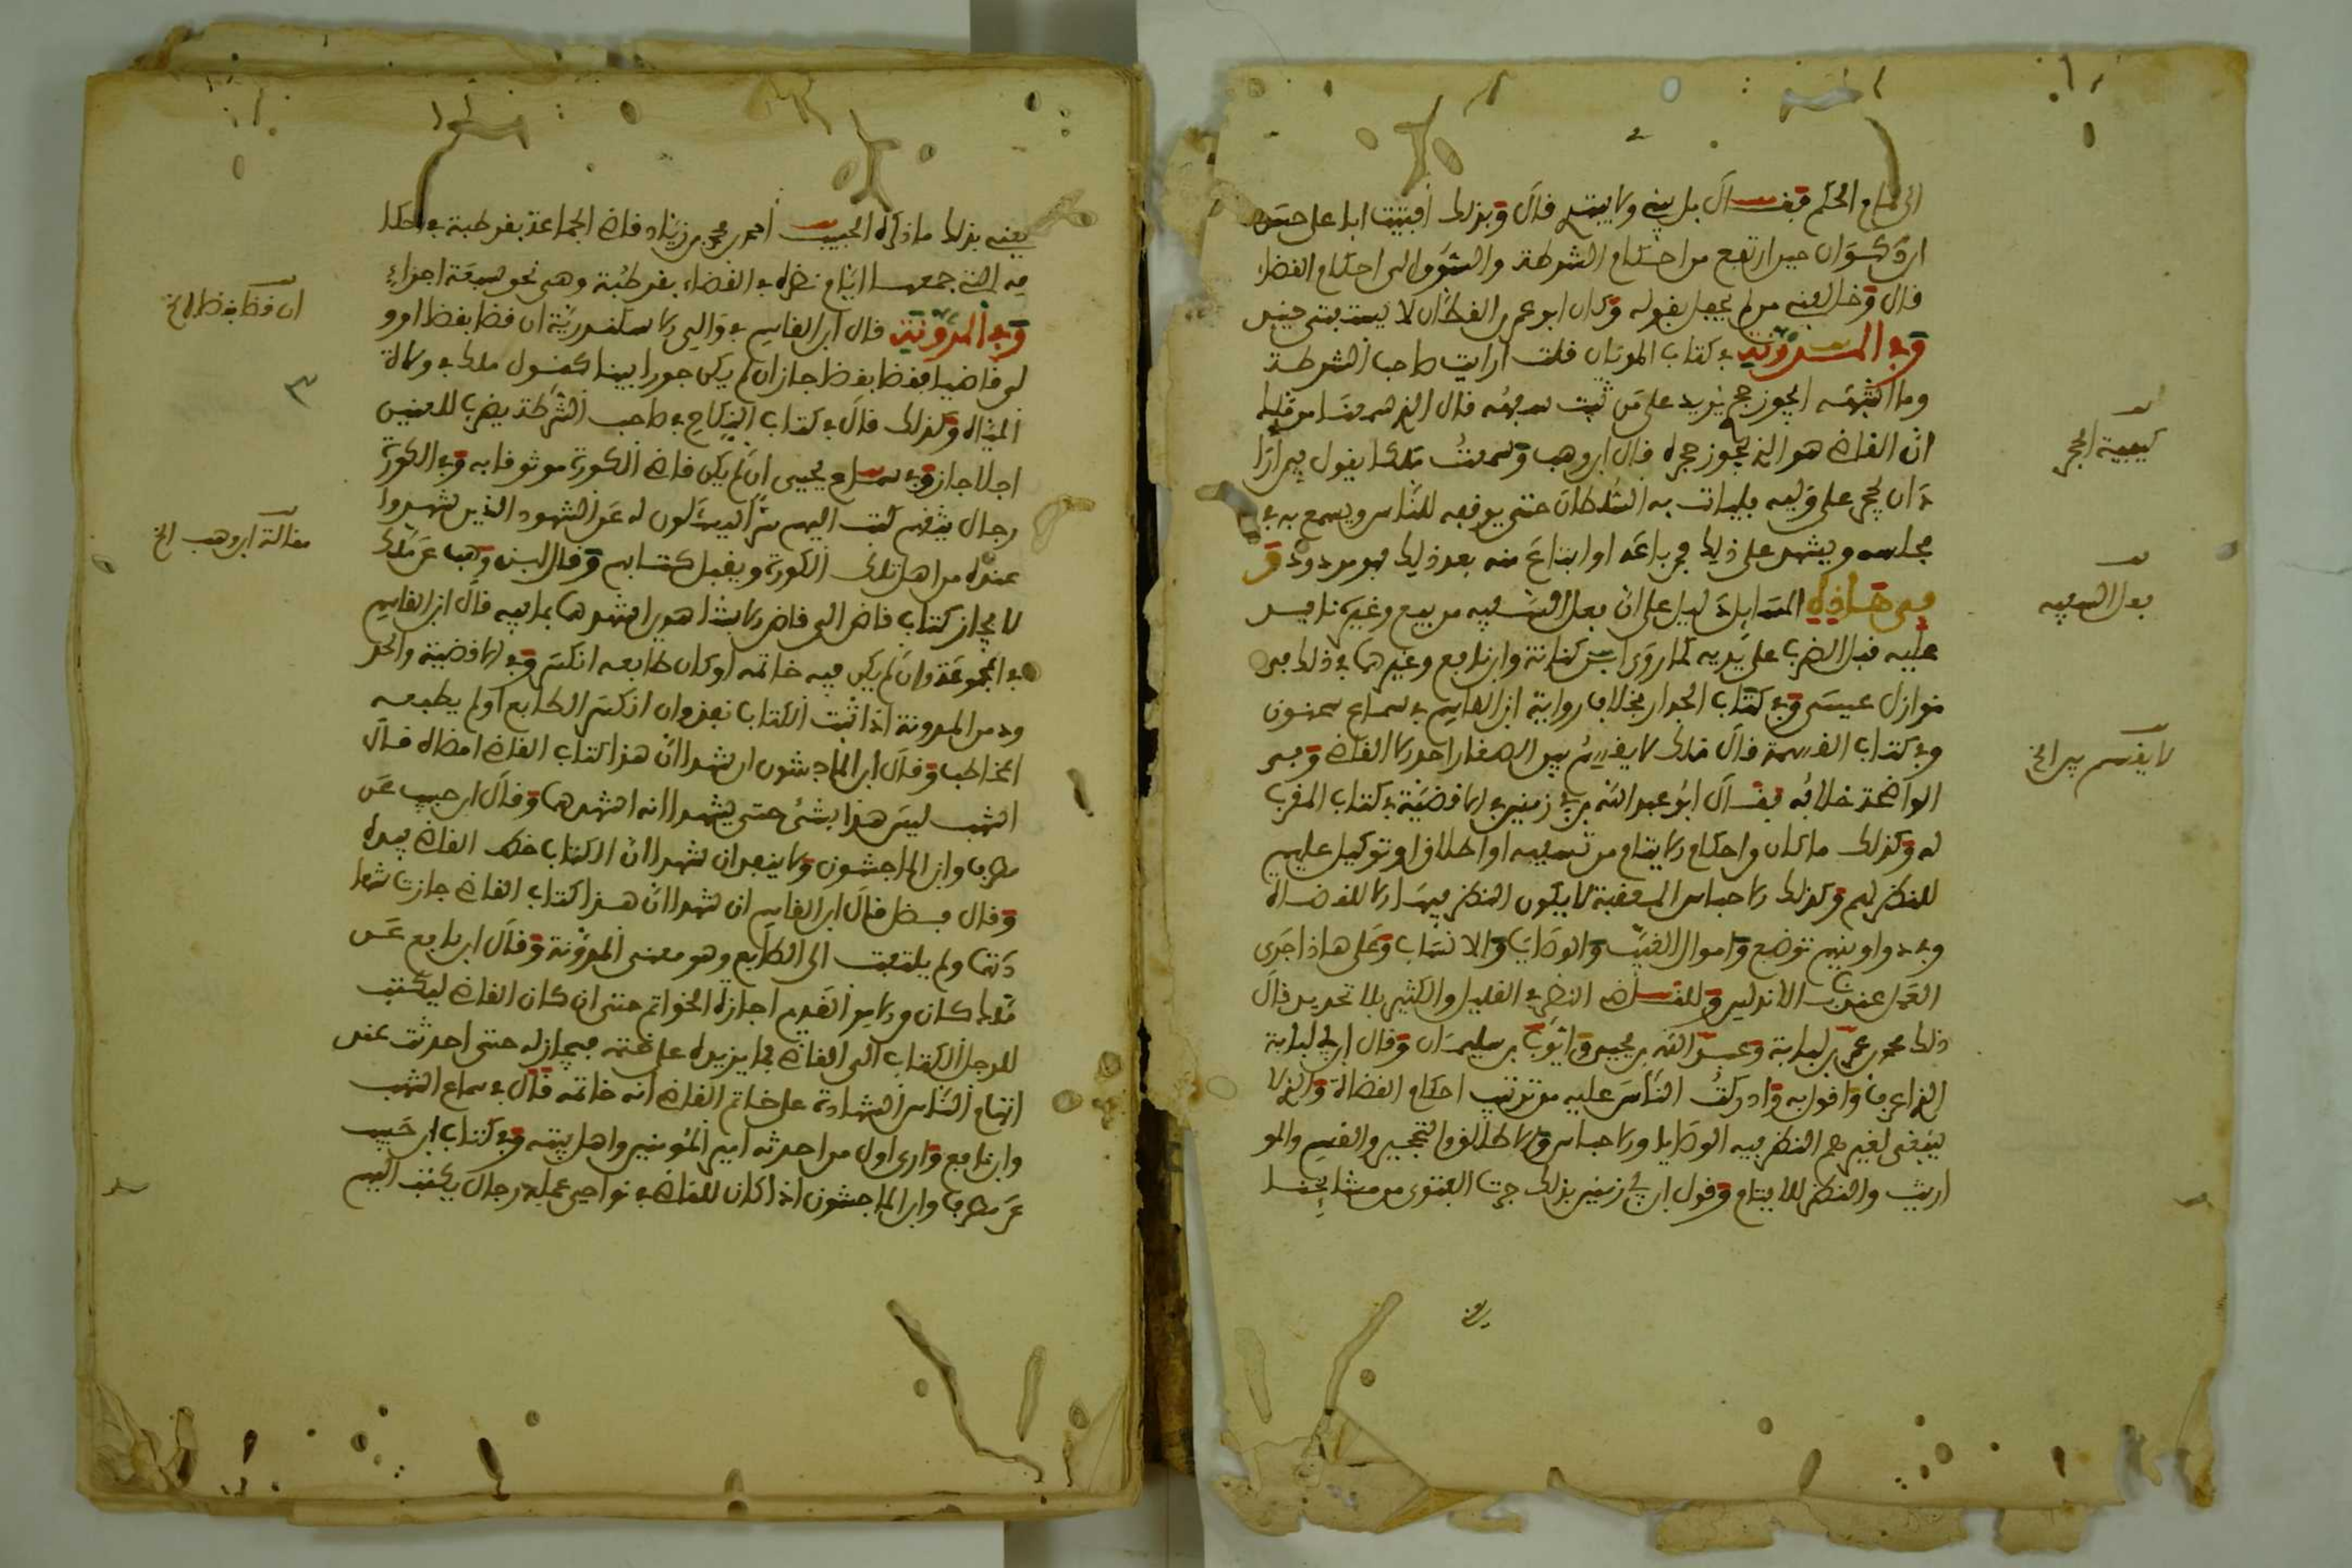 الى امام الحكم فقال بل بنى ولا يبتدي قال وبذلك افتيت
ارتفع من احكام الشرطة والسوق الى احكام القضاء
قال وخالفنى من لم يعجل بقوله وكان ابو عمر بن القطان لا يستثبتنى حينئذ
وفى المدونة فى كتاب المديان قلت ارايت صاحب الشرطة
وما اشبهه ايجوز حجره على من ثبت سفهه قال الذى سمعنا من قوله
ان القاضى هو الذى يجوز حجره قال ابن وهب وسمعت مالكا يقول من اراد
ان يحجر على وليه فليات به السلطان حتى يوقفه للناس ويسمع به فى
مجلسه ويشهد على ذلك فمن باعه او ابتاع منه بعد ذلك فهو مردود ق
ففى هذه المسايل دليل على ان فعل السفيه من بيع وغيره نافذ
عليه قبل الضرب على يديه كما روى ابن كنانة وابن نافع وغيرهما فى ذلك فى
نوازل عيسى وفى كتاب الجدار بخلاف رواية ابن القاسم فى سماع سحنون
وفى كتاب القسمة قال مالك لا يقسم بين الصغار احد الا القاضى وفى
الواضحة خلافه فقال ابو عبد الله بن ابى زمنين فى الاقضية فى كتاب المقرب
له وكذلك ما كان من احكام الايتام من تسفيه او اطلاق او توكيل عليهم
للنظر لهم وكذلك الاحباس المعقبة لا يكون النظر فيها الا للقضاة
وفى دواوينهم توضع واموال الغيب والوصايا والانساب وعلى هذا جرى
العمل عندنا بالاندلس وللقاضى النظر فى القليل والكثير بلا تحديد قال
ذلك محمد بن عمر بن لبابة وعبيد الله بن يحيى وايوب بن سليمان وقال ابن لبابة
الذى اعرف واقول به وادركت الناس عليه من ترتيب احكام القضاة والذى لا
ينبغى لغيرهم النظر فيه الوصايا والاحباس والاطلاق والتحجير والقسم والمو
اريث والنظر للايتام وقول ابن ابى زمنين بذلك جرت الفتوى من مشايخنا
كيفية الحجر
فعل السفيه
لا يقسم بين الخ
يعنى بذلك ما ذكره الحبيب احمد بن محمد بن زياد قاضى الجماعة بقرطبة فى احكا
مه التى جمعها ايام نظره فى القضاء بقرطبة وهى نحو سبعة اجزاء
وفى المدونة قال ابن القاسم فى والى الاسكندرية ان قضا بقضا او و
لى قاضيا فقضا بقضا جاز ان لم يكن جورا بينا كقول مالك فى ولاة
المياه وكذلك قال فى كتاب النكاح فى صاحب الشرطة يضرب للعنين
اجلا جاز وفى سماع يحيى ان لم يكن قاضى الكورة موثوقا به وفى الكورة
رجال يثق بهم كتب اليهم سرا ليسئلون له عن الشهود الذين شهدوا
عنده من اهل تلك الكورة ويقبل كتابهم وقال ابن وهب عن مالك
لا يجاز كتاب قاض الى قاض الا بشاهدين اشهدهما بما فيه قال ابن القاسم
فى المجموعة وان لم يكن فيه خاتمه او كان طابعه انكسر وفى الاقضية والحد
ود من المدونة اذا ثبت الكتاب نفذ وان انكسر الطابع او لم يطبعه
المخاطب وقال ابن الماجشون ان شهدا ان هذا كتاب القاضى امضاه قال
اشهب ليس هذا بشئ حتى يشهدا انه اشهدهما وقال ابن حبيب عن
مطرف وابن الماجشون ولا ينفع ان شهدا ان الكتاب خط القاضى بيده
وقال فضل قال ابن القاسم ان شهدا ان هذا كتاب القاضى جازت شها
دتهما ولم يلتفت الى الطابع وهو معنى المدونة وقال ابن نافع عن
مالك كان من الامر القديم اجازة الخواتم حتى ان كان القاضى ليكتب
للرجل الكتاب الى القاضى فما يزيده على ختمه فيجاز له حتى احدثت عند
اتهام الناس الشهادة على خاتم القاضى انه خاتمه قال فى سماع اشهب
وابن نافع وارى اول من احدثه امير المؤمنين واهل بيته وفى كتاب ابن حبيب
عن مطرف وابن الماجشون اذا كان للقاضى فى نواحى عمله رجال يكتب اليهم
ان قضا بقضا الخ
مقالة ابن وهب الخ